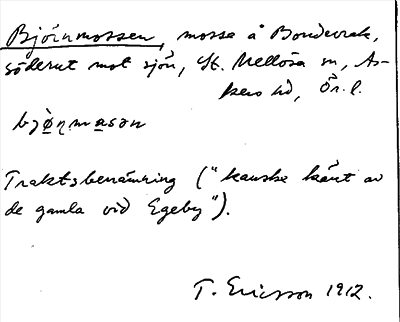 Björnmossen, mossa å Bondevrak,
söderut mot sjön, St. Mellösa sn, As-
kers hd, Ör. l.
bjò̤ṇma̤sən
Traktsbenämning ("kanske känt av
de gamla vid Egeby").
T. Ericsson 1912.